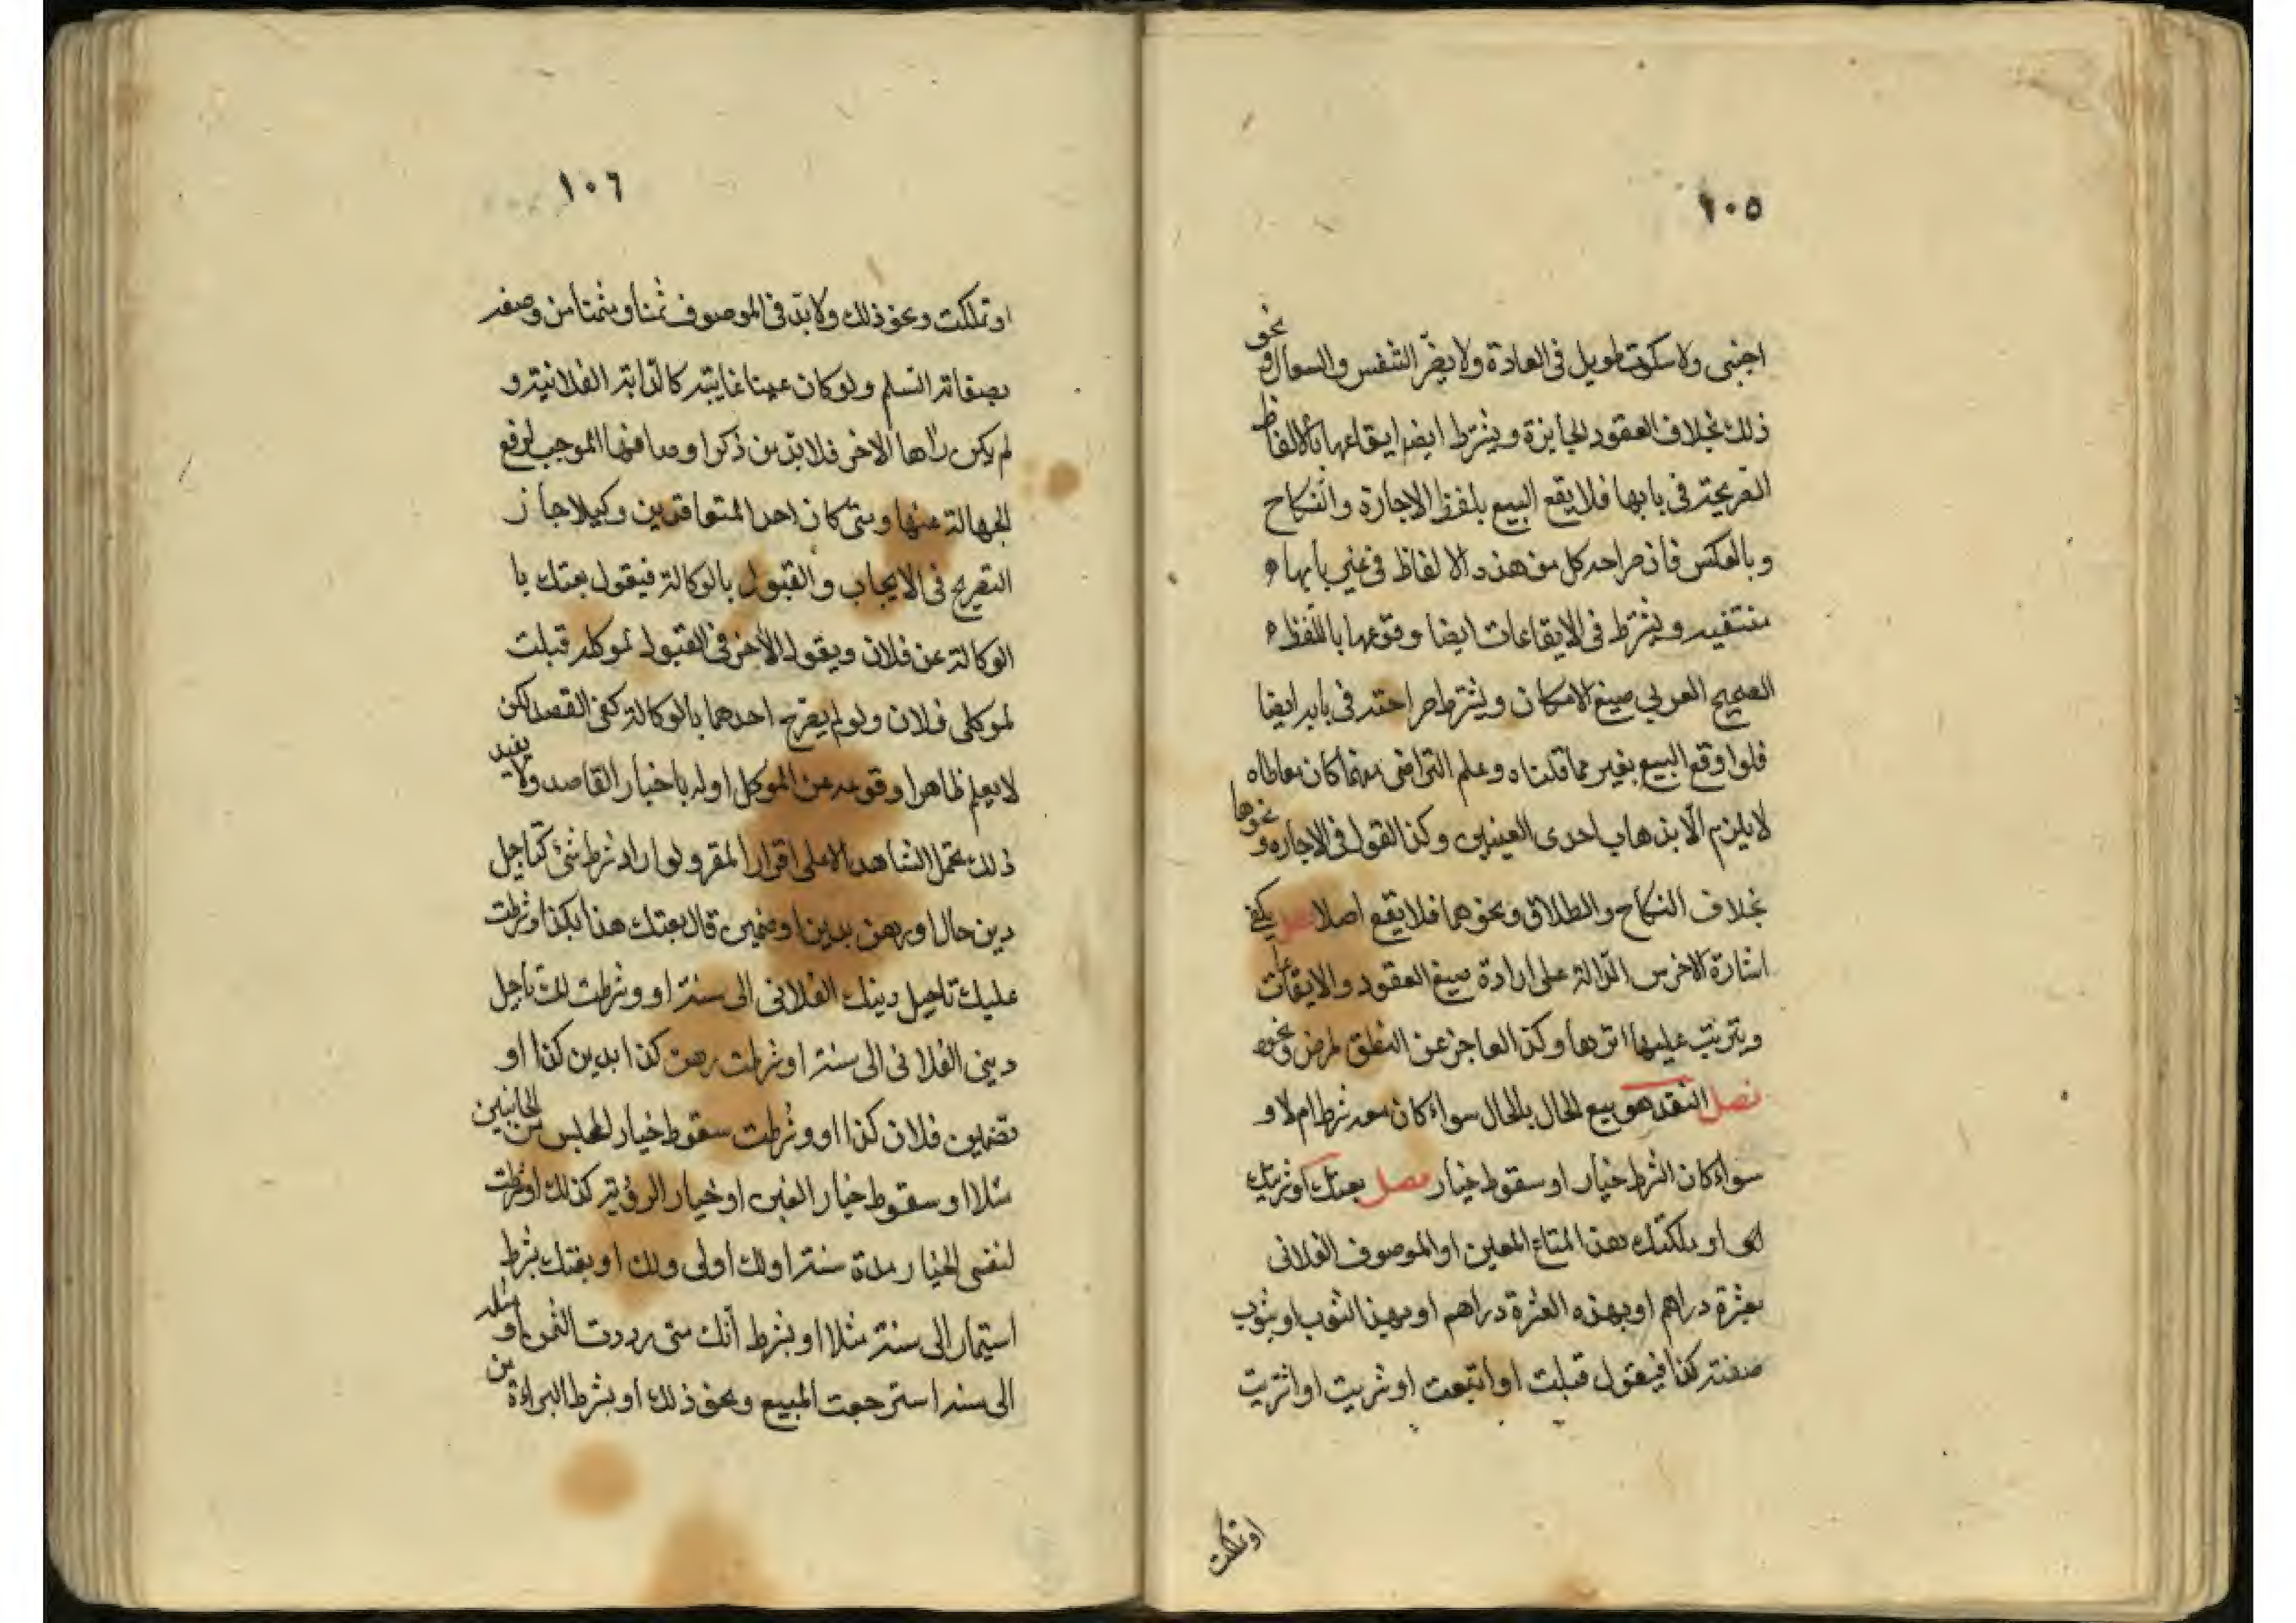 ١٠٥
اجنبى ولا سكوت طويل فى العادة ولا يضرّ التنفس والسعال و نحو
ذلك بخلاف العقود الجايزة ويشترط ايضا ايقاعها بالالفاظ
الصريحة فى بابها فلا يقع البيع بلفظ الاجارة والنكاح
وبالعكس فان صراحة كل من هذه الالفاظ فى غير بابها
منتفيه ويشترط فى الايقاعات ايضا وقوعها باللفظ
الصحيح العربي مع الامكان ويشترط صراحته فى بابه ايضا
فلو اوقع البيع بغير ما قلناه وعلم التراضى منهما كان معاطاه
لا يلزم الّا بذهاب احدى العينين وكذا القول فى الاجاره و نحوها
بخلاف النكاح والطلاق ونحوهما فلا يقع اصلا فصل يكفى
اشارة الاخرس الدّالة على ارادة صيغ العقود والايقاعات
ويترتب عليها اثرها وكذا العاجز عن النطق لمرض ونحوه
فصل النقد هو بيع الحال بالحال سواء كان معه شرط ام لا و
سواء كان الشرط خيار او سقوط خيار فصل بعتك او شريتك
او ملكتك هذا المتاع المعين او الموصوف الفلانى
بعشرة دراهم او بهذه العشرة دراهم او بهذا الثوب او بثوب
صفته كذا فيقول قبلت او ابتعت او شريت او اشتريت
او تملكت
١٠٦
او تملكت ونحو ذلك ولا بدّ فى الموصوف ثمنا ومثمنا من وصفه
بصفاته السلم ولو كان عينا غايبة كالدّابة الفلانية و
لم يكن رآها الاخر فلا بدّ من ذكر اوصافها الموجب لرفع
الجهالة عنها ومتى كان احد المتعاقدين وكيلا جاز
التصريح فى الايجاب والقبول بالوكالة فيقول بعتك با
الوكالة عن فلان ويقول الاخر فى القبول لموكله قبلت
لموكلى فلان ولو لم يصرح احدهما بالوكالة كفى القصد لكن
لا يعلم ظاهرا وقوعه من الموكل او له باخبار القاصد ولا يفيد
ذلك تحمل الشاهد الا على اقرار المقر ولو اراد شرط شئ كتاجيل
دين حال او رهن بدين او ضمين قال بعتك هذا بكذا وشرطت
عليك تاجيل دينك الفلانى الى سنة او وشرطت لك تأجيل
دينى الفلانى الى سنة او شرطت رهن كذا بدين كذا او
تضمين فلان كذا او وشرطت سقوط خيار المجلس من الجانبين
مثلا او سقوط خيار الغبن او خيار الرؤية كذلك او شرطت
لنفسى الخيار مدة سنة او لك او لى ولك او بعتك بشرط
استيمار الى سنة مثلا او بشرط انك متى رددت الثمن او مثله
الى سنه استرجعت المبيع ونحو ذلك او بشرط البراءة من